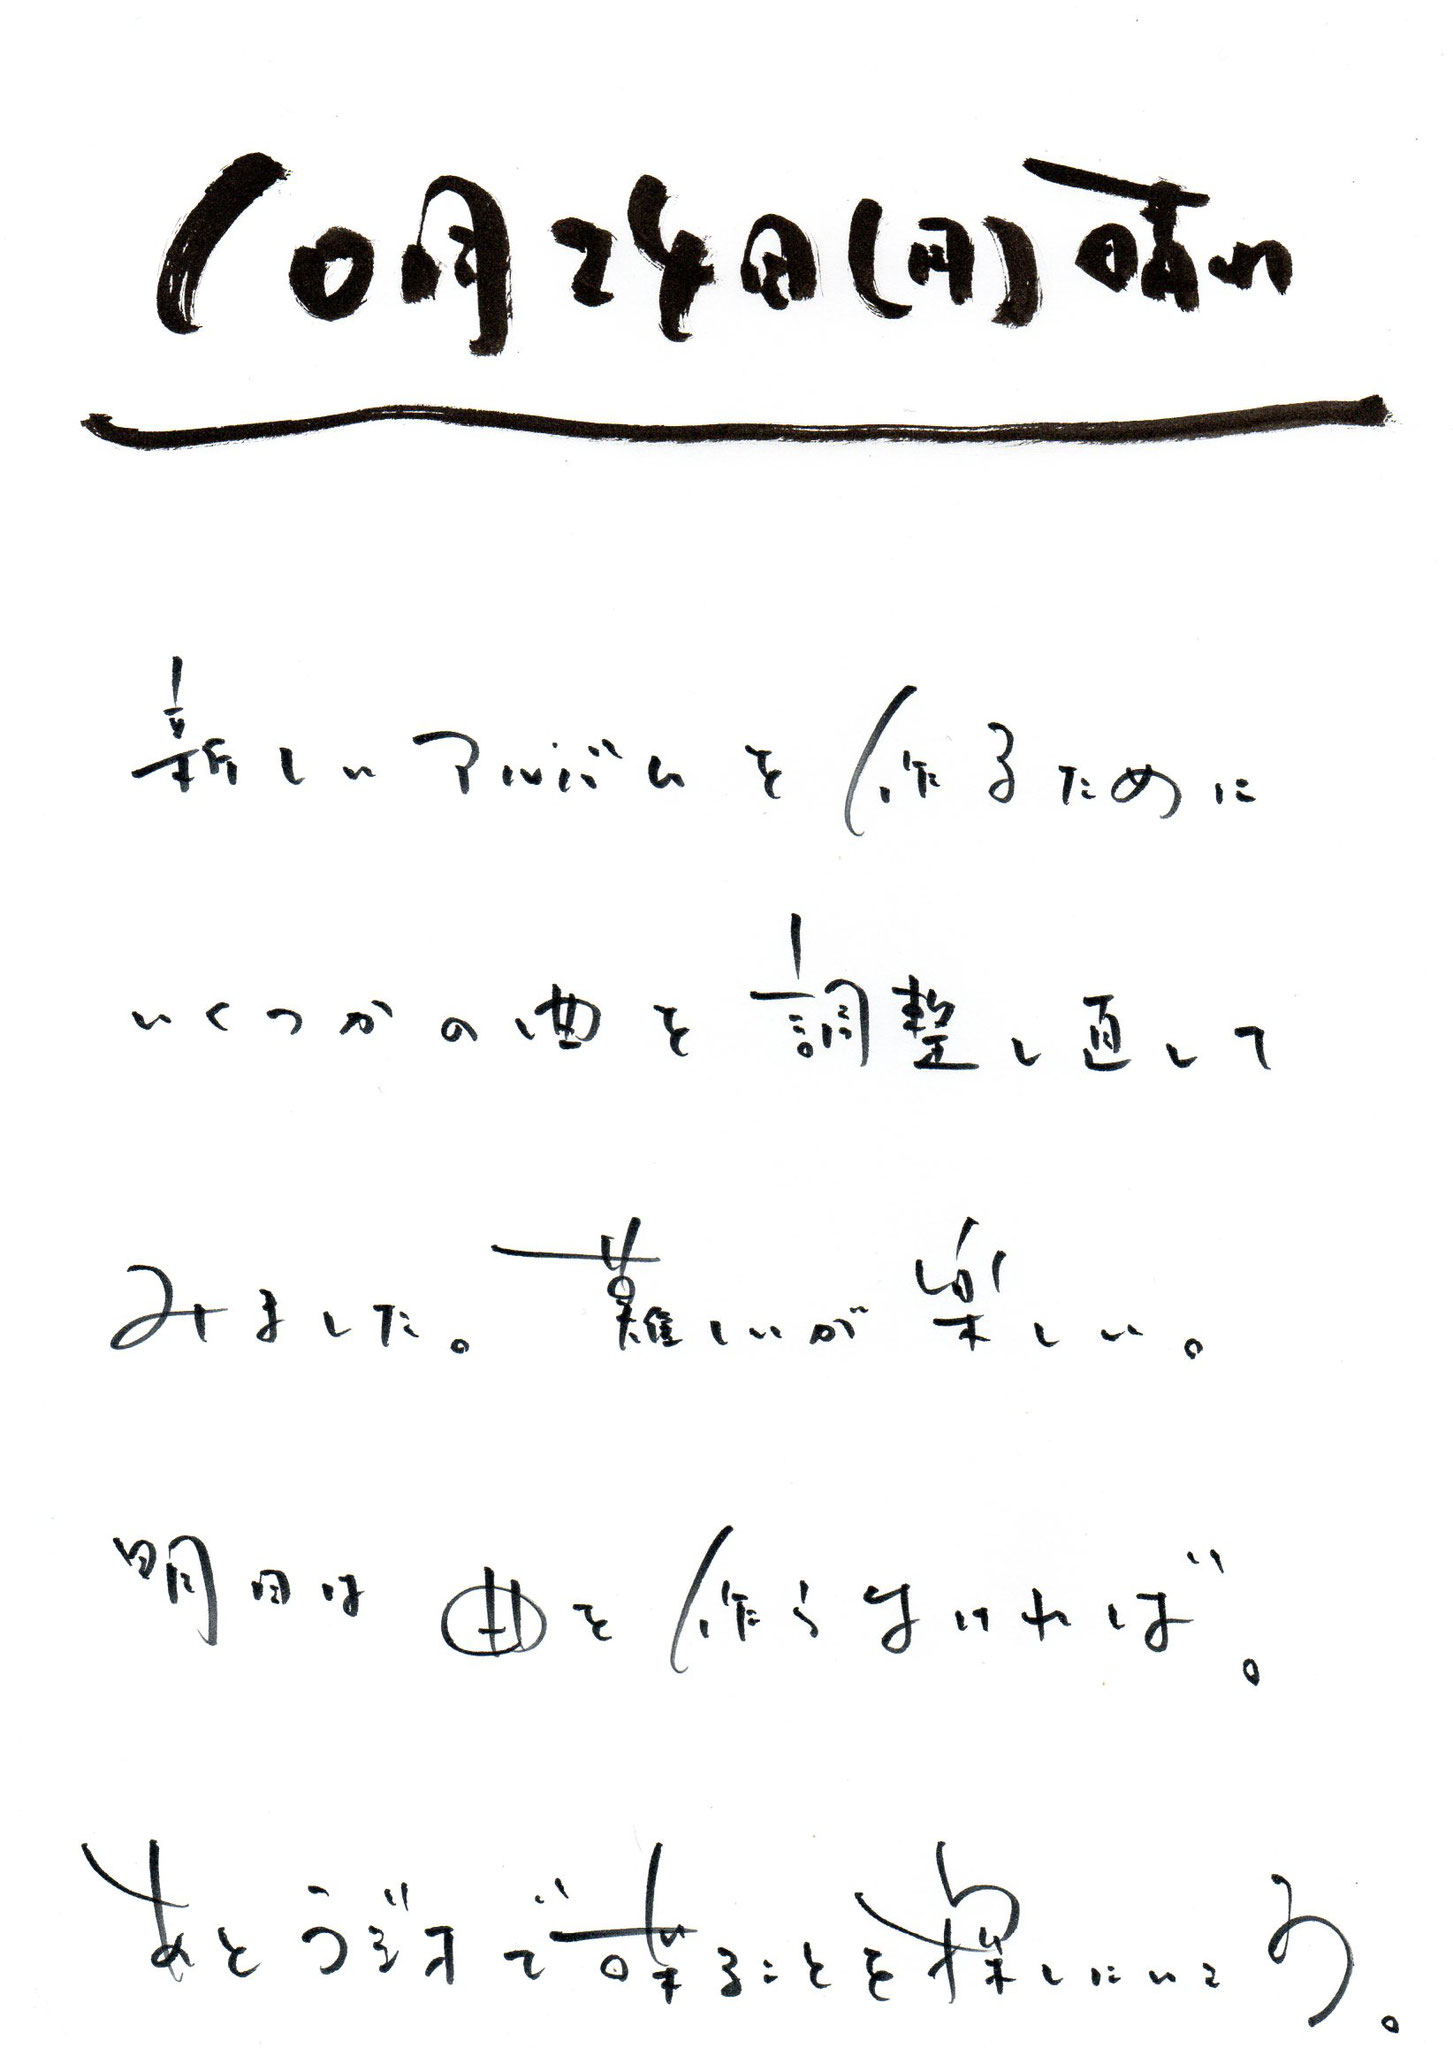 10月24日(月)晴れ
新しいアルバムを作るために
いくつかの曲を調整し直して
みました。難しいが楽しい。
明日は曲を作らなければ。
あとラジオで喋ることを探しにいこう。